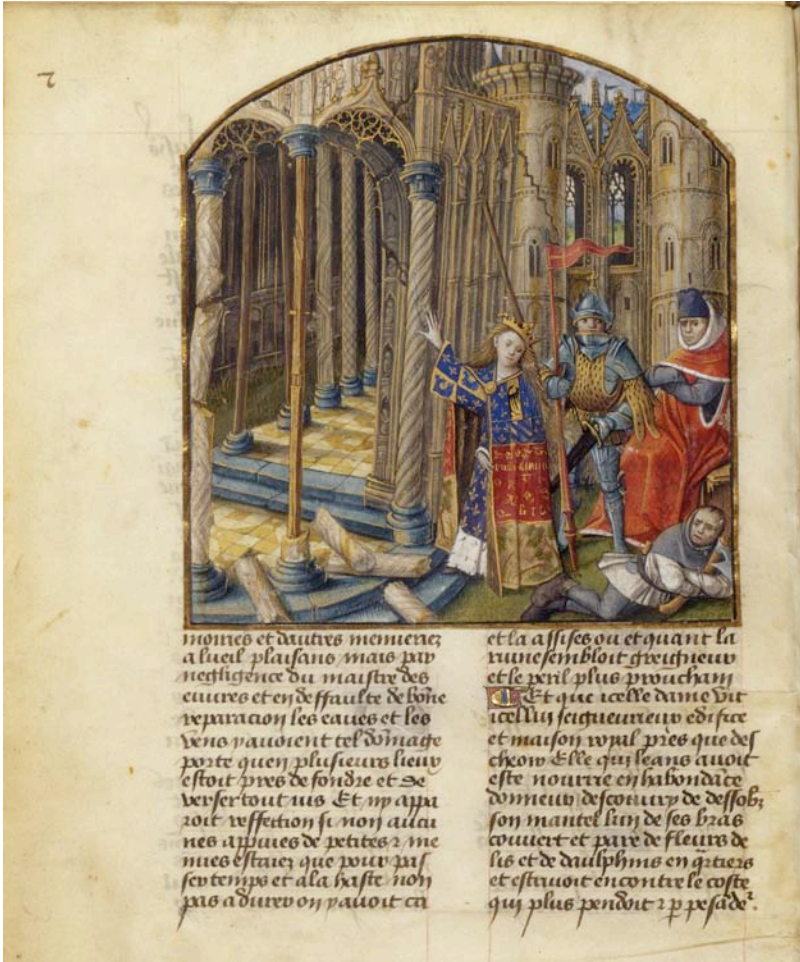 moiries et dautres menuriez
a lueil plaisans mais par
negligence du maistre des
euvres et en deffaulte de bōne
reparacion les eaues et les
vens y avoient tel dōmage
porte quen plusieurs lieux
estoit pres de fondre et de
verser tout jus Et ny appa
roit reffection si non aucu
nes appuies de petites ⁊ me
nues estaiez que pour pas
ser temps et a la haste non
pas a durer on y avoit ca
et la assises ou et quant la
ruine sembloit greigneur
et le peril plus prouchain
Et que icelle dame vit
icellui seigneurieux edifice
et maison royal pres que des
cheoir Elle qui leans avoit
este nourrie en habondāce
donneur descouvry de dessoubz
son mantel lun de ses bras
couvert et pare de fleurs de
lis et de daulphins en qrtiers
et estaioit encontre le coste
qui plus pendoit ⁊ p pesāde²